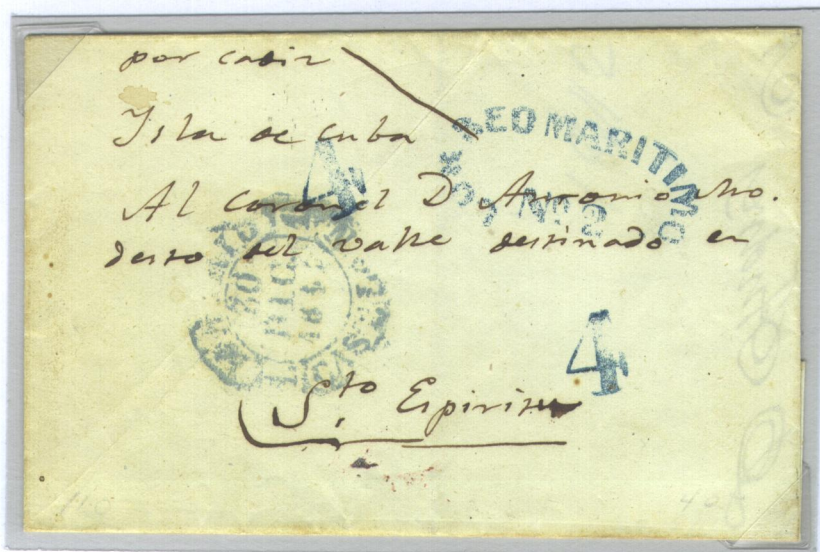 por cadiz
Isla de Cuba
4
CORREO MARITIMO
Nº 2
Al Coronel D Antonio Mo.
desto del valle destinado en
20
DIC
4
Sto Espiritu